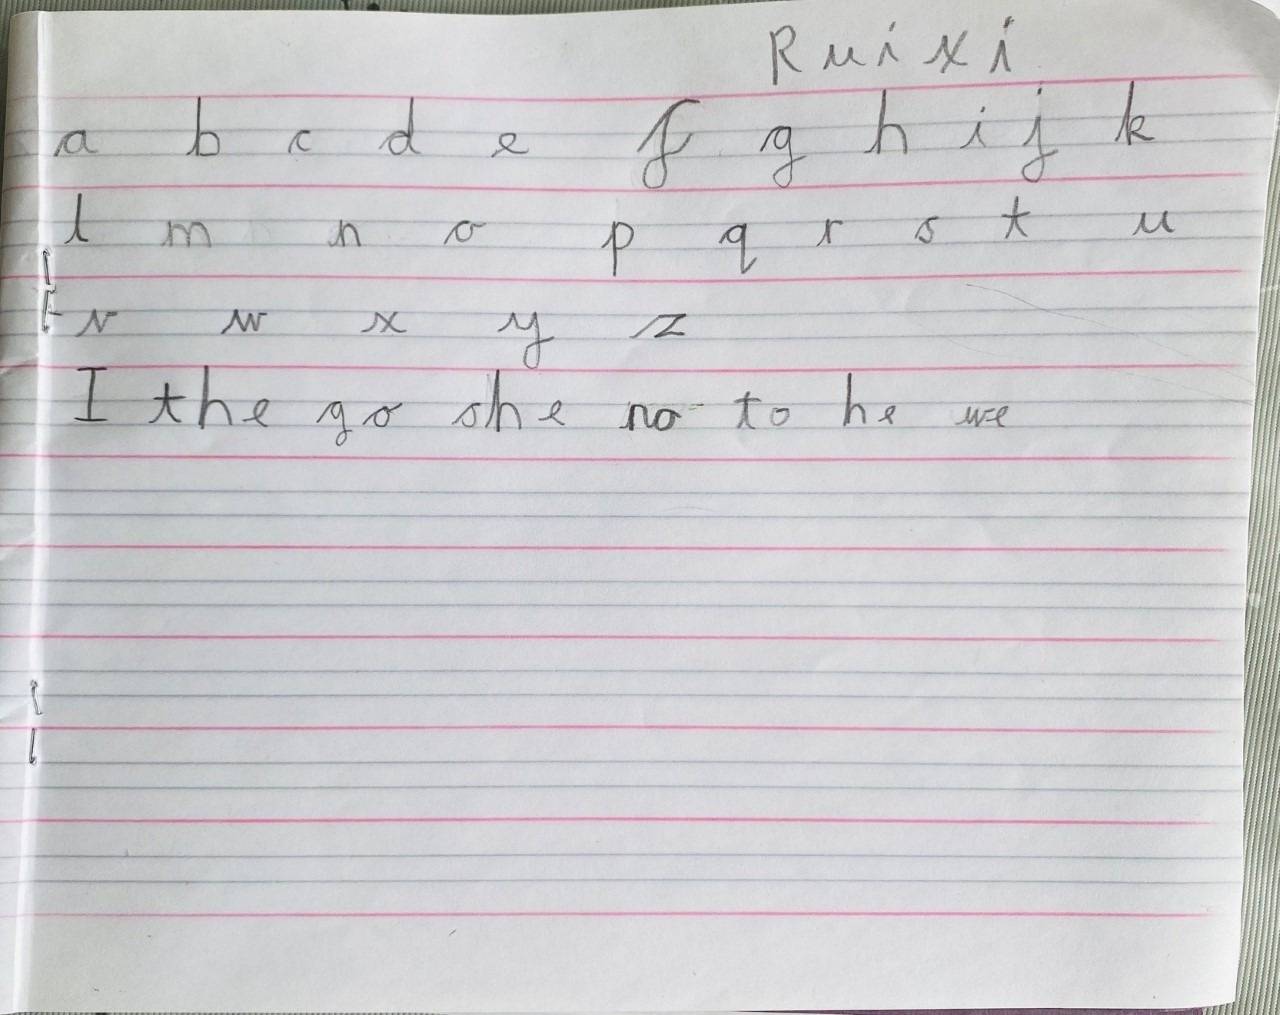 Ruixi
a b c d e f g h i j k
l m n o p q r s t u
v w x y z
I the go she no to he we